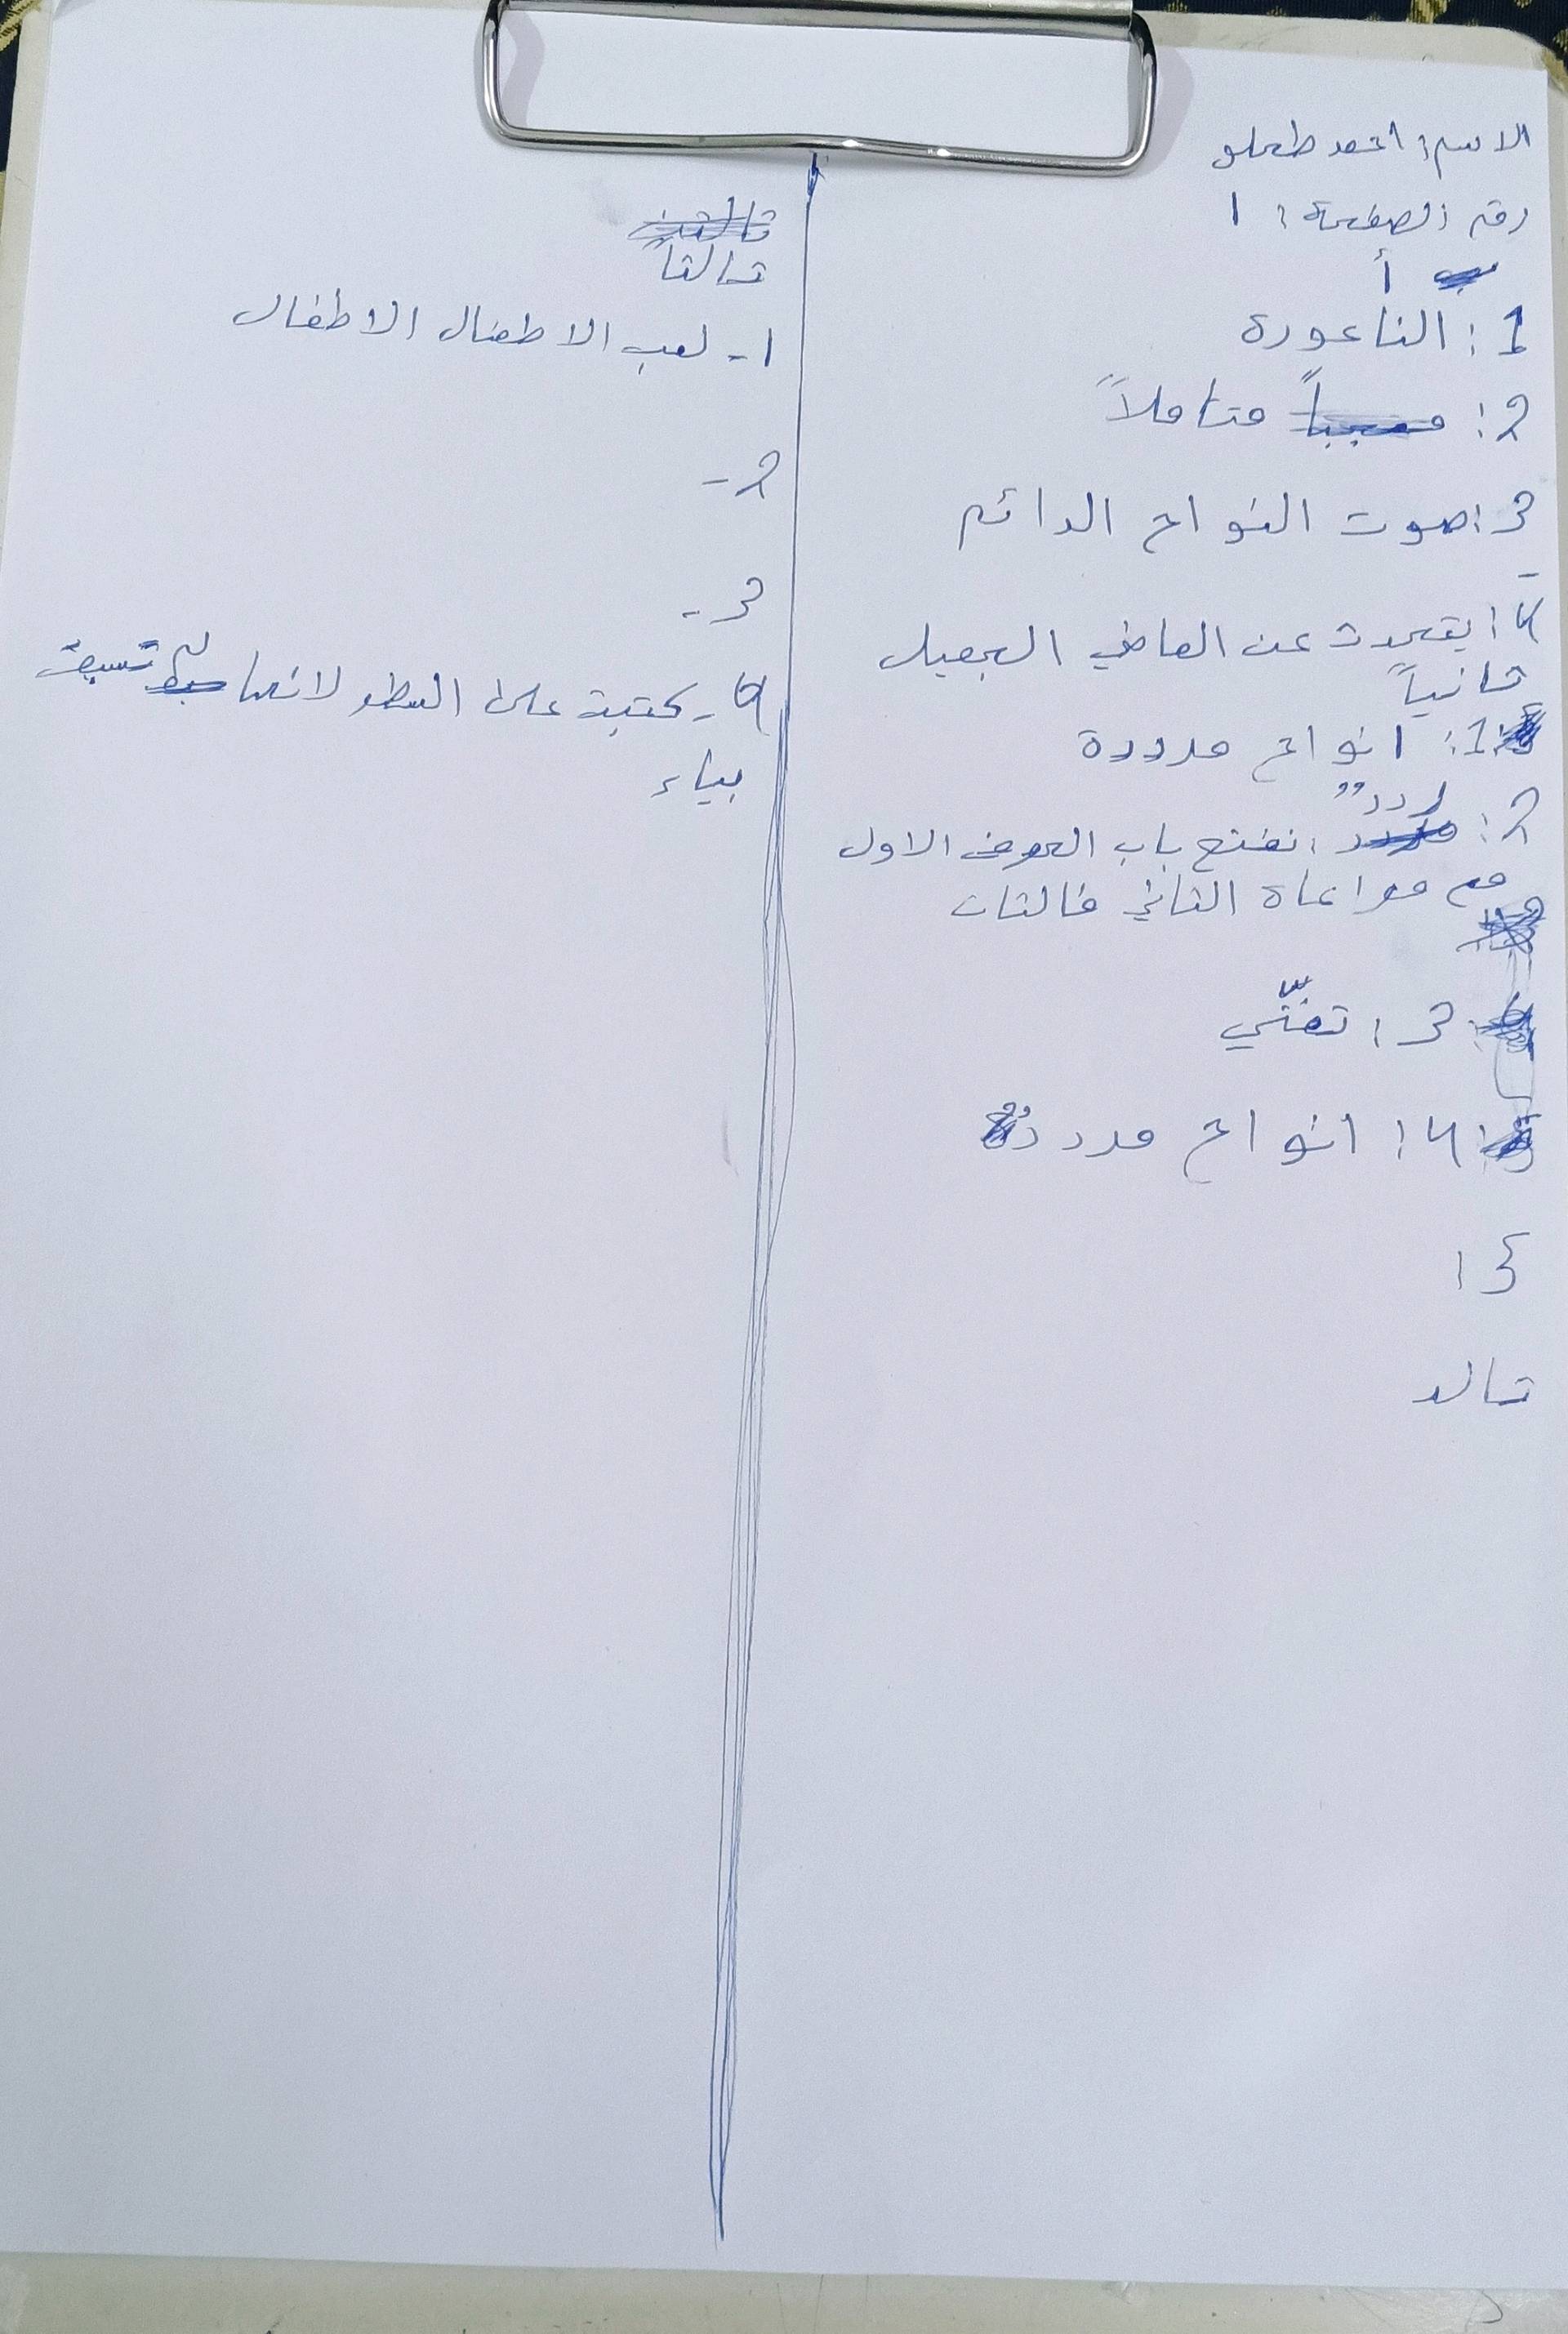 الاسم: احمد طعلو
رقم الصفحة: 1
أ
1: الناعورة
2: متاملاً
3: صوت النواح الدائم
4: يتحدث عن الماضي الجميل
ثانياً
1: انواح مرددة
2: ردد: نفتح باب الحرف الاول
مع مراعاة الثاني فالثات
3: تغنّي
4: انواح مردد
5:
ثالد
ثالثاً
1- لعب الاطفال الاطفال
2-
3-
4- كتبت على السطر لانها لم تسبق
بياء